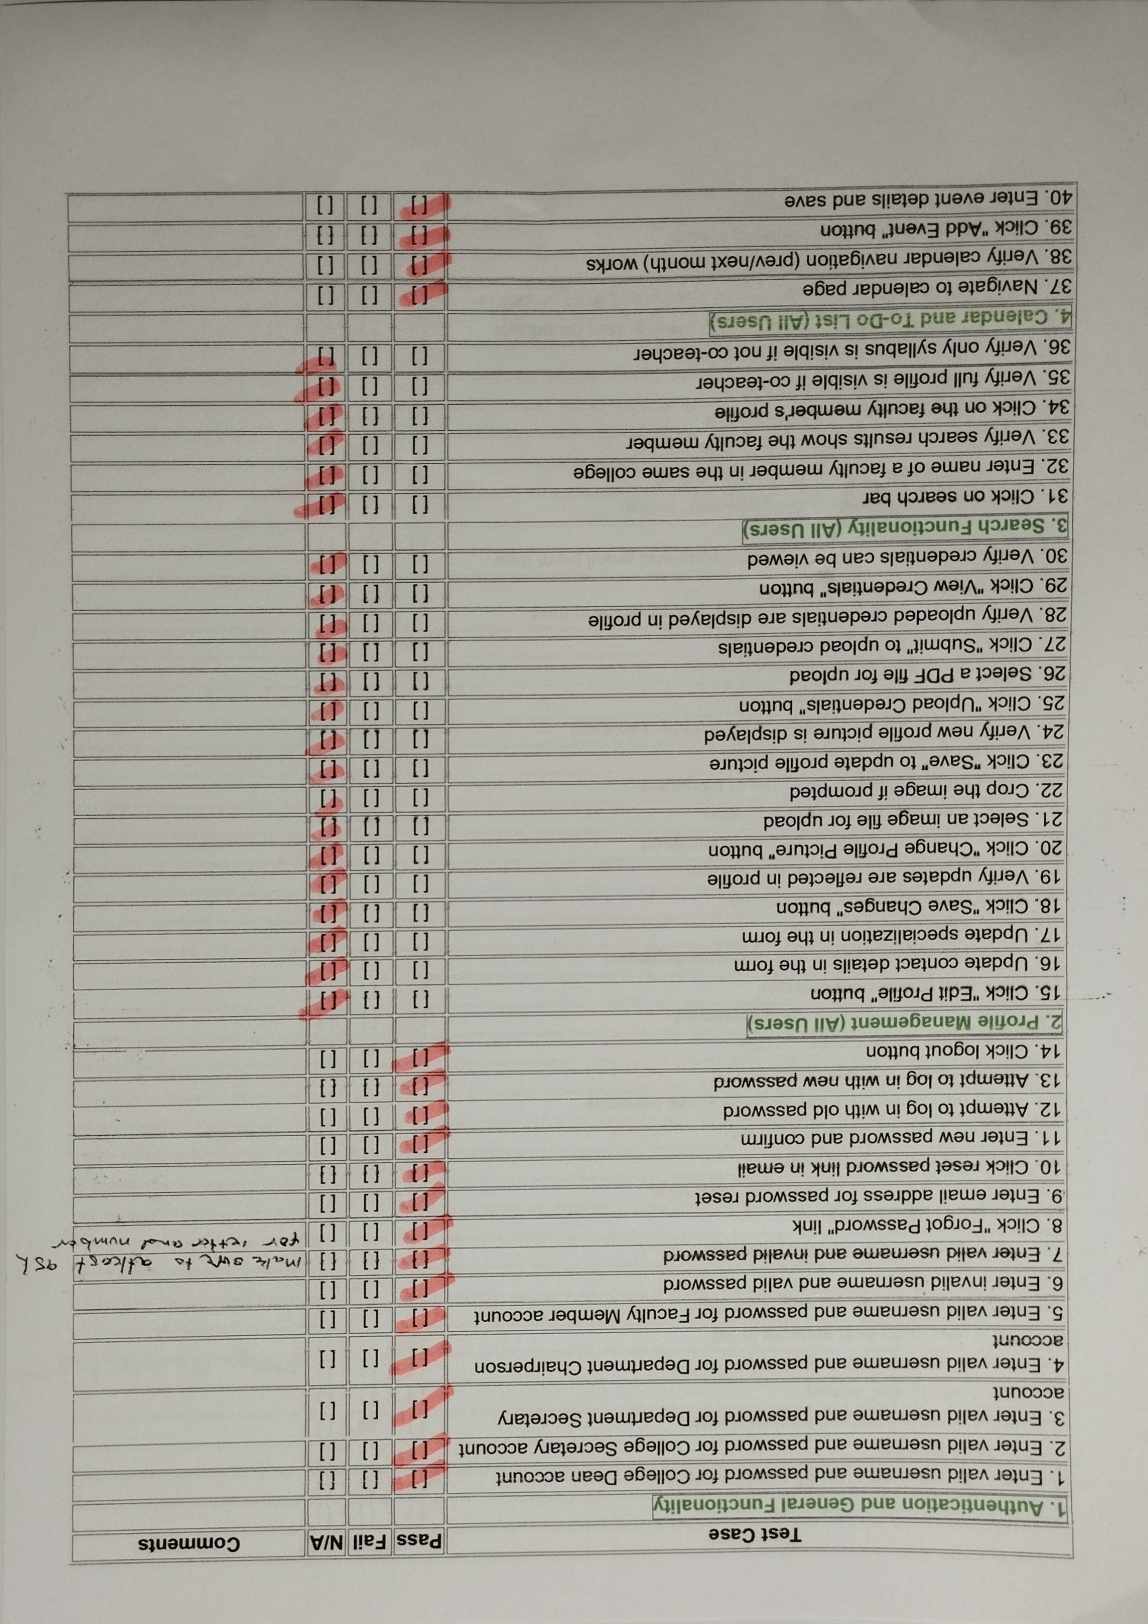 Test Case Pass Fail N/A Comments
1. Authentication and General Functionality
1. Enter valid username and password for College Dean account [ ] [ ] [ ]
2. Enter valid username and password for College Secretary account [ ] [ ] [ ]
3. Enter valid username and password for Department Secretary
account [ ] [ ] [ ]
4. Enter valid username and password for Department Chairperson
account [ ] [ ] [ ]
5. Enter valid username and password for Faculty Member account [ ] [ ] [ ]
6. Enter invalid username and valid password [ ] [ ] [ ]
7. Enter valid username and invalid password [ ] [ ] [ ] Make sure to atleast
8. Click "Forgot Password" link [ ] [ ] [ ] for letter and number
9. Enter email address for password reset [ ] [ ] [ ]
10. Click reset password link in email [ ] [ ] [ ]
11. Enter new password and confirm [ ] [ ] [ ]
12. Attempt to log in with old password [ ] [ ] [ ]
13. Attempt to log in with new password [ ] [ ] [ ]
14. Click logout button [ ] [ ] [ ]
2. Profile Management (All Users)
15. Click "Edit Profile" button [ ] [ ] [ ]
16. Update contact details in the form [ ] [ ] [ ]
17. Update specialization in the form [ ] [ ] [ ]
18. Click "Save Changes" button [ ] [ ] [ ]
19. Verify updates are reflected in profile [ ] [ ] [ ]
20. Click "Change Profile Picture" button [ ] [ ] [ ]
21. Select an image file for upload [ ] [ ] [ ]
22. Crop the image if prompted [ ] [ ] [ ]
23. Click "Save" to update profile picture [ ] [ ] [ ]
24. Verify new profile picture is displayed [ ] [ ] [ ]
25. Click "Upload Credentials" button [ ] [ ] [ ]
26. Select a PDF file for upload [ ] [ ] [ ]
27. Click "Submit" to upload credentials [ ] [ ] [ ]
28. Verify uploaded credentials are displayed in profile [ ] [ ] [ ]
29. Click "View Credentials" button [ ] [ ] [ ]
30. Verify credentials can be viewed [ ] [ ] [ ]
3. Search Functionality (All Users)
31. Click on search bar [ ] [ ] [ ]
32. Enter name of a faculty member in the same college [ ] [ ] [ ]
33. Verify search results show the faculty member [ ] [ ] [ ]
34. Click on the faculty member's profile [ ] [ ] [ ]
35. Verify full profile is visible if co-teacher [ ] [ ] [ ]
36. Verify only syllabus is visible if not co-teacher [ ] [ ] [ ]
4. Calendar and To-Do List (All Users)
37. Navigate to calendar page [ ] [ ] [ ]
38. Verify calendar navigation (prev/next month) works [ ] [ ] [ ]
39. Click "Add Event" button [ ] [ ] [ ]
40. Enter event details and save [ ] [ ] [ ]